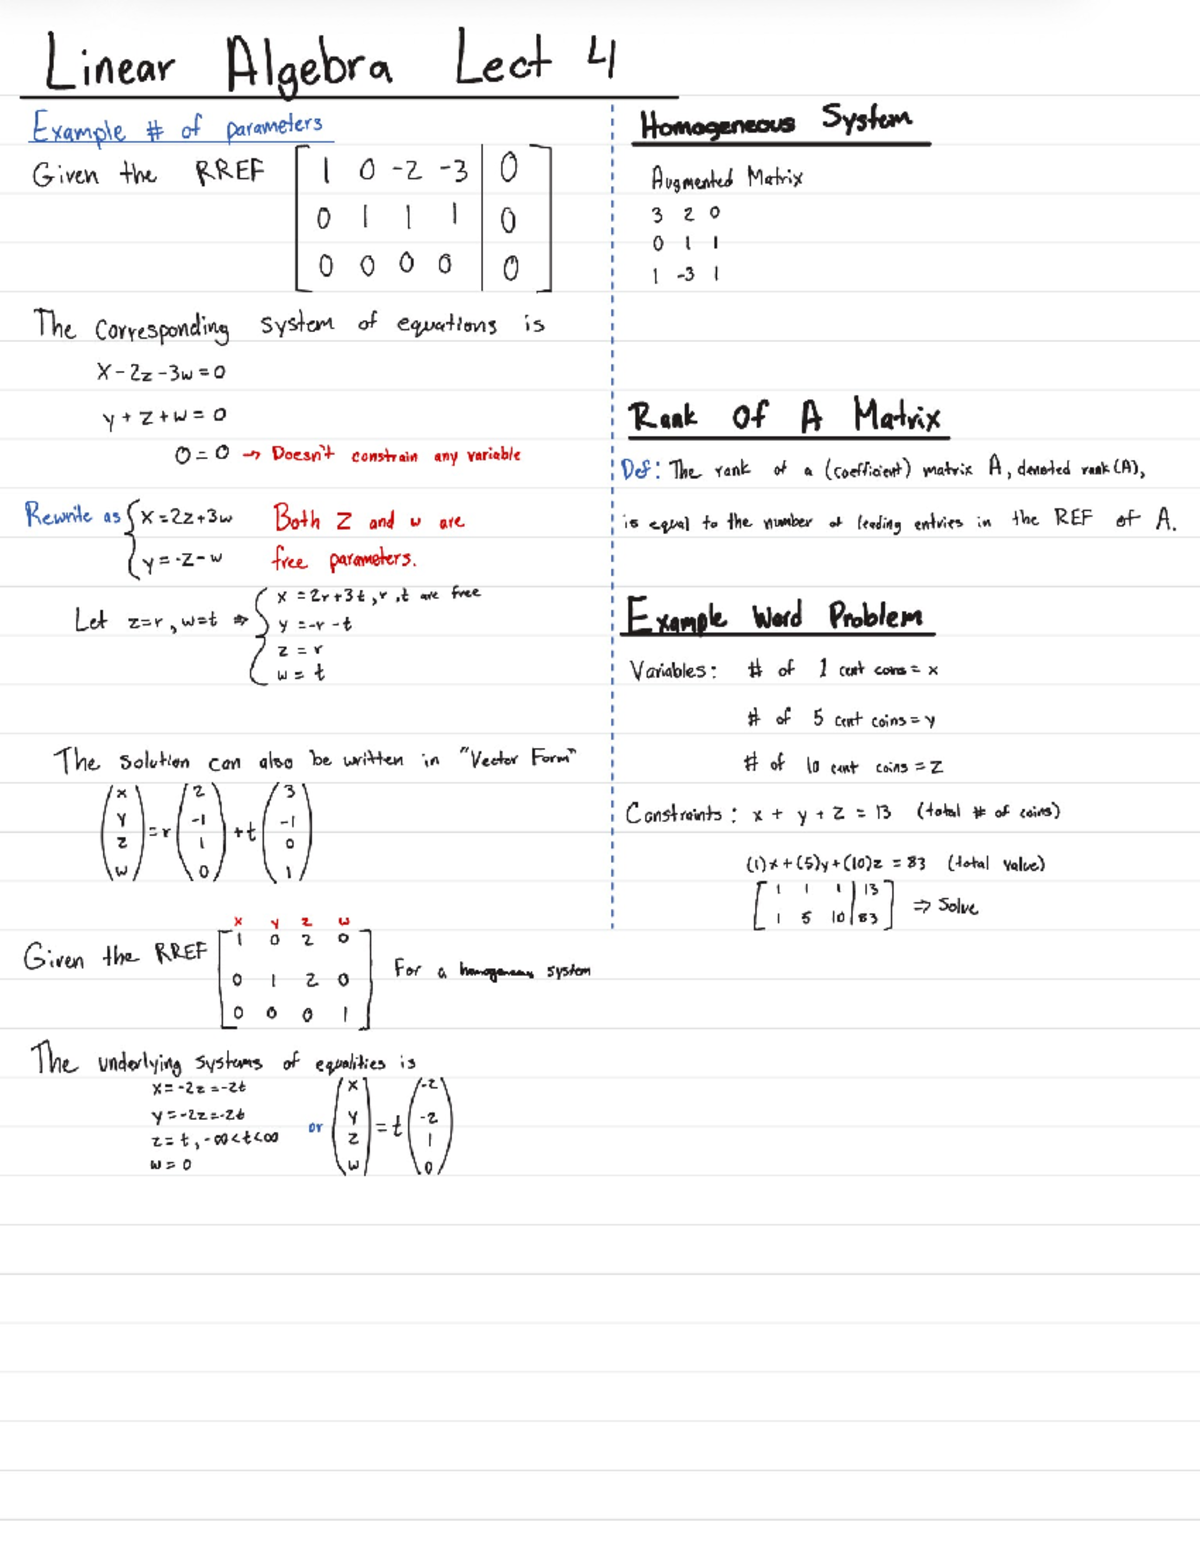 Linear Algebra Lect 4
Example # of parameters
Given the RREF
1 0 -2 -3 | 0
0 1 1 1 | 0
0 0 0 0 | 0
The corresponding system of equations is
x - 2z - 3w = 0
y + z + w = 0
0 = 0 → Doesn't constrain any variable
Rewrite as { x = 2z + 3w
y = -z - w
Both z and w are
free parameters.
Let z=r, w=t ⇒ { x = 2r + 3t, r, t are free
y = -r - t
z = r
w = t
The solution can also be written in "Vector Form"
(x y z w) = r (2 -1 1 0) + t (3 -1 0 1)
x y z w
Given the RREF
1 0 2 0
0 1 2 0
0 0 0 1
For a homogeneous system
The underlying systems of equalities is
x = -2z = -2t
y = -2z = -2t
z = t, -∞ < t < ∞
w = 0
or (x y z w) = t (-2 -2 1 0)
Homogeneous System
Augmented Matrix
3 2 0
0 1 1
1 -3 1
Rank Of A Matrix
Def: The rank of a (coefficient) matrix A, denoted rank (A),
is equal to the number of leading entries in the REF of A.
Example Word Problem
Variables: # of 1 cent coins = x
# of 5 cent coins = y
# of 10 cent coins = z
Constraints: x + y + z = 13 (total # of coins)
(1)x + (5)y + (10)z = 83 (total value)
1 1 1 | 13
1 5 10 | 83
⇒ Solve